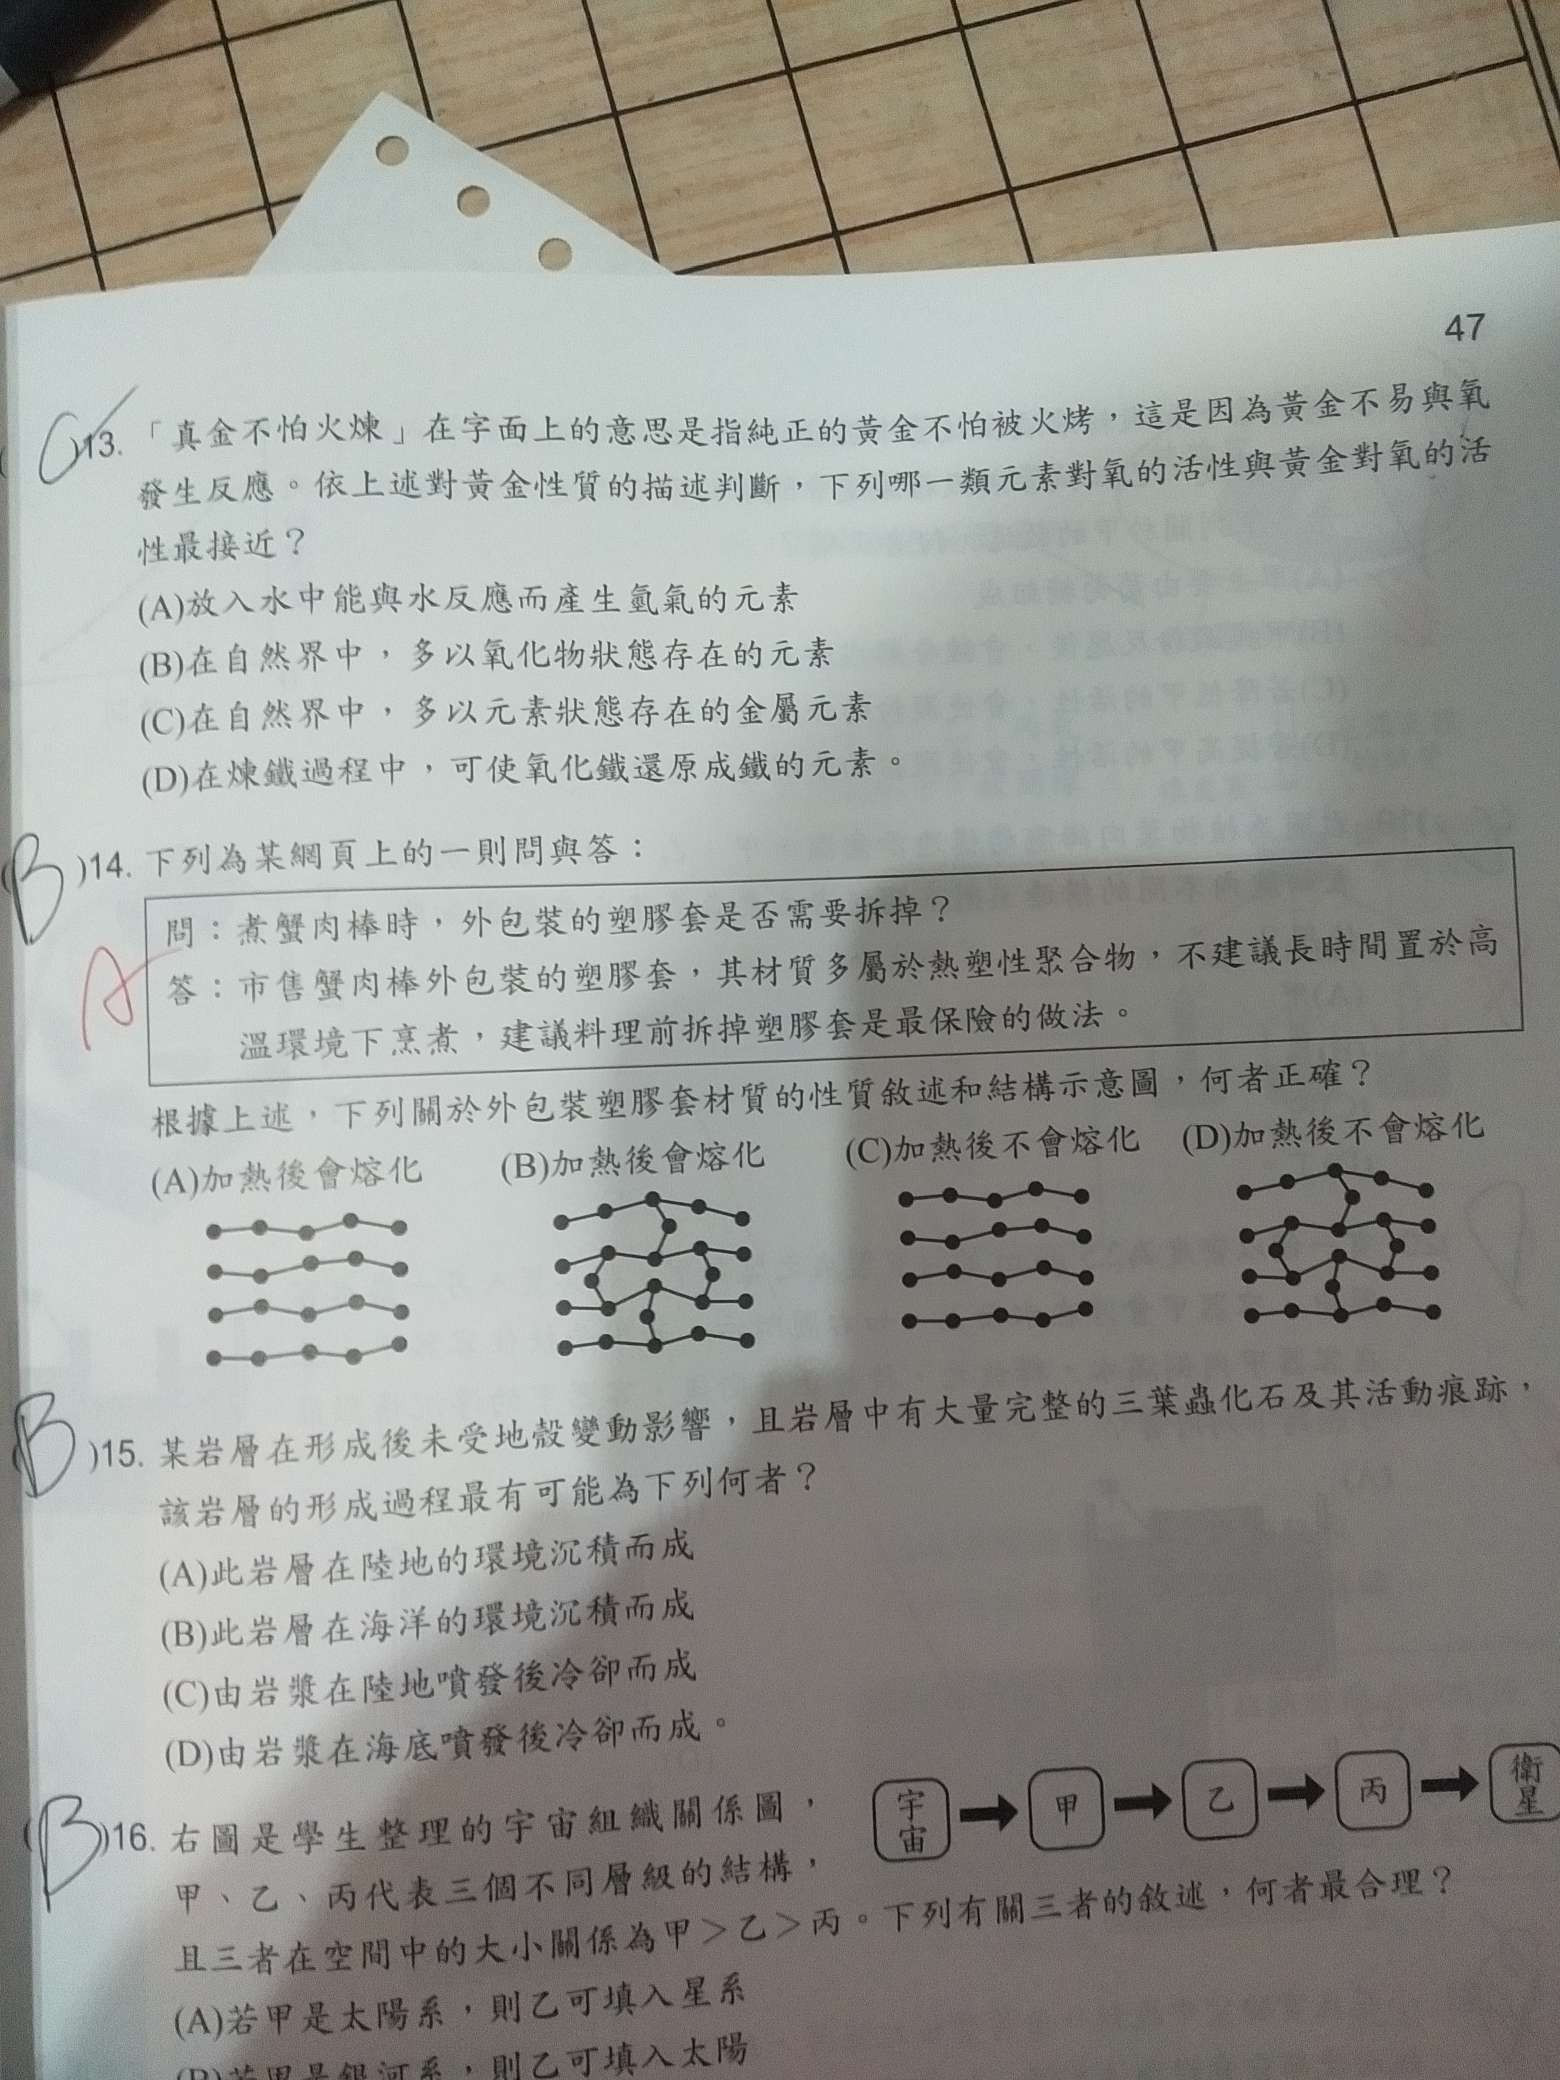 47
C )13.「真金不怕火煉」在字面上的意思是指純正的黃金不怕被火烤,這是因為黃金不易與氧
發生反應。依上述對黃金性質的描述判斷,下列哪一類元素對氧的活性與黃金對氧的活
性最接近?
(A)放入水中能與水反應而產生氫氣的元素
(B)在自然界中,多以氧化物狀態存在的元素
(C)在自然界中,多以元素狀態存在的金屬元素
(D)在煉鐵過程中,可使氧化鐵還原成鐵的元素。
B )14. 下列為某網頁上的一則問與答:
A
問:煮蟹肉棒時,外包裝的塑膠套是否需要拆掉?
答:市售蟹肉棒外包裝的塑膠套,其材質多屬於熱塑性聚合物,不建議長時間置於高
溫環境下烹煮,建議料理前拆掉塑膠套是最保險的做法。
根據上述,下列關於外包裝塑膠套材質的性質敘述和結構示意圖,何者正確?
(A)加熱後會熔化 (B)加熱後會熔化 (C)加熱後不會熔化 (D)加熱後不會熔化
B )15. 某岩層在形成後未受地殼變動影響,且岩層中有大量完整的三葉蟲化石及其活動痕跡,
該岩層的形成過程最有可能為下列何者?
(A)此岩層在陸地的環境沉積而成
(B)此岩層在海洋的環境沉積而成
(C)由岩漿在陸地噴發後冷卻而成
(D)由岩漿在海底噴發後冷卻而成。
(B)16. 右圖是學生整理的宇宙組織關係圖,
宇宙 甲 乙 丙 衛星
甲、乙、丙代表三個不同層級的結構,
且三者在空間中的大小關係為甲>乙>丙。下列有關三者的敘述,何者最合理?
(A)若甲是太陽系,則乙可填入星系
(B)若甲是銀河系,則乙可填入太陽